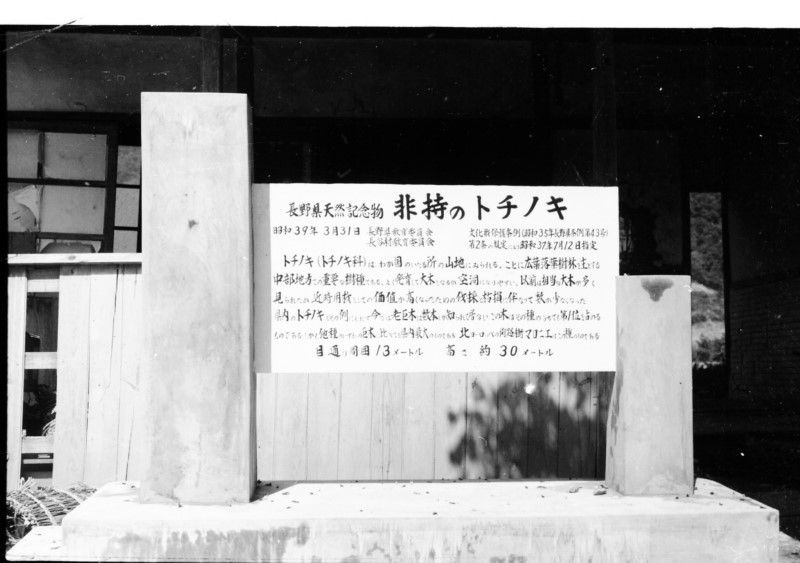 長野県天然記念物 非持のトチノキ
昭和39年3月31日 長野県教育委員会 文化財保護条例(昭和35年長野県条例第43号)
長谷村教育委員会 第2条の規定により昭和37年7月12日指定
トチノキ(トチノキ科)は わが国のいたる所の山地にみられる。ことに広葉落葉樹林を主とする
中部地方での重要な樹種である。よく発育して大木となるが空洞になりやすい。以前は相当の大木が多く
見られたが 近時用材としての価値が高くなったための伐採と
県内のトチノキもその例にもれず 今では老巨木は数本が知られるに
北ヨーロッパの街路樹マロニエは
目通り周囲 13メートル 高さ 約 30 メートル